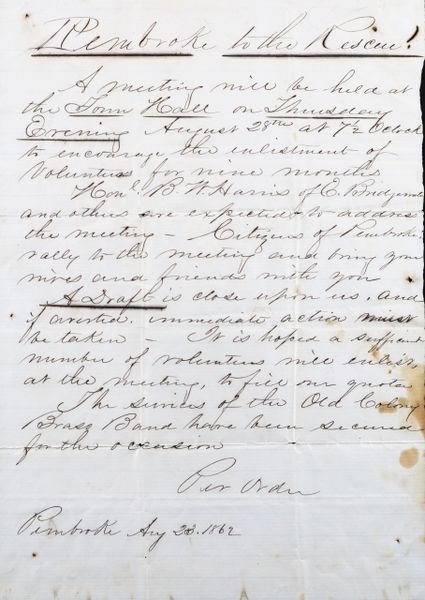 Pembroke to the Rescue!
A meeting will be held at
the Town Hall on Thursday
Evening August 28th at 7½ Oclock
to encourage the enlistment of
Volunteers for nine months
Honl B. W. Harris of E. Bridgewat
and others are expected to address
the meeting – Citizens of Pembroke
rally to the meeting and bring your
wives and friends with you
A Draft is close upon us, and
if averted, immediate action must
be taken – It is hoped a sufficient
number of volunteers will enlist,
at the meeting, to fill our quota
The services of the Old Colony
Brass Band have been secured
for the occasion
Per Order
Pembroke Aug 23. 1862